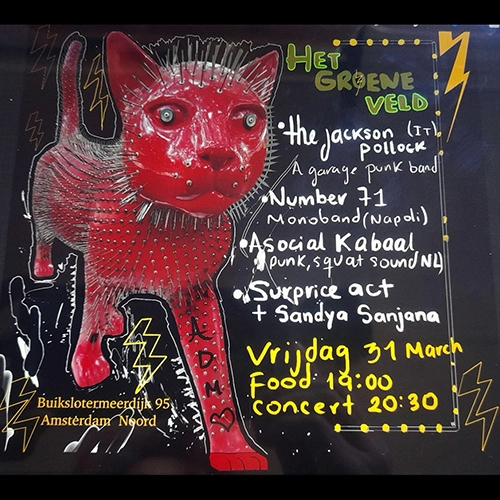 HET
GROENE
VELD
• the jackson (IT)
pollock
A garage punk band
• Number 71
Monoband (Napoli)
• Asocial Kabaal
(punk, squat sound NL)
• Surprice act
+ Sandya Sanjana
Vrijdag 31 March
Food 19:00
concert 20:30
ADM
Buikslotermeerdijk 95
Amsterdam Noord